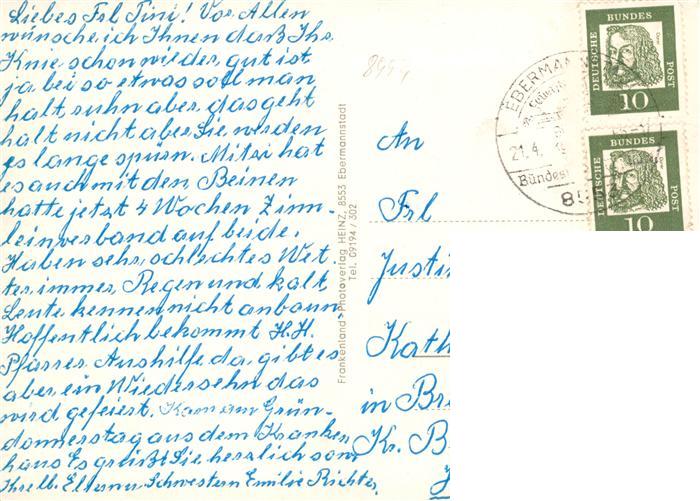 Liebes Frl Tini! Vor Allen
wünsche ich Ihnen daß Ihr
Knie schon wieder gut ist
ja bei so etwas soll man
halt ruhn aber das geht
halt nicht aber Sie werden
es lange spürn. Mitzi hat
es auch mit den Beinen
hatte jetzt 4 Wochen Zinn-
leinverband auf beide.
Haben sehr schlechtes Wet-
ter immer Regen und kalt
Leute kennen nicht anbaun
Hoffentlich bekommt H.H.
Pfarrer Aushilfe, da gibt es
aber ein Wiedersehn das
wird gefeiert. Kam am Grün-
donnerstag aus dem Kranken
haus Es grüßt Sie herzlich sowie
Ihre lb. Eltern u Schwestern Emilie Richter
Frankenland-Photoverlag HEINZ, 8553 Ebermannstadt
Tel. 09194 / 302
An
Frl
Justin
Kath
in Br
Kr. B
DEUTSCHE BUNDES POST
10
DEUTSCHE BUNDES POST
10
EBERMAN
21.4.
Bundes
85